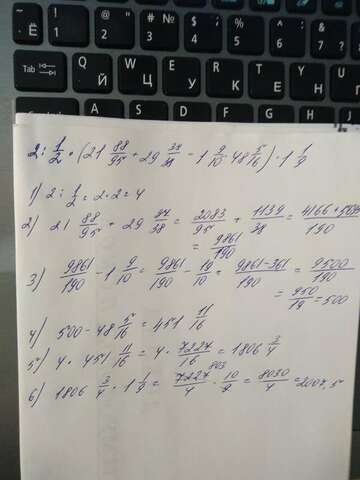 ~ ! " № ; % : ?
Ё 1 @ 2 # 3 $ 4 % 5 6 7
Tab Й Ц У К Е Н
2 : 1/2 · (21 88/95 + 29 37/38 - 1 9/10 - 48 5/16) · 1 1/9
1) 2 : 1/2 = 2 · 2 = 4
2) 21 88/95 + 29 37/38 = 2083/95 + 1139/38 = 4166+5695/190
= 9861/190
3) 9861/190 - 1 9/10 = 9861/190 - 19/10 = 9861-361/190 = 9500/190
= 950/19 = 500
4) 500 - 48 5/16 = 451 11/16
5) 4 · 451 11/16 = 4 · 7227/16 = 1806 3/4
6) 1806 3/4 · 1 1/9 = 7227 803/4 · 10/9 = 8030/4 = 2007,5